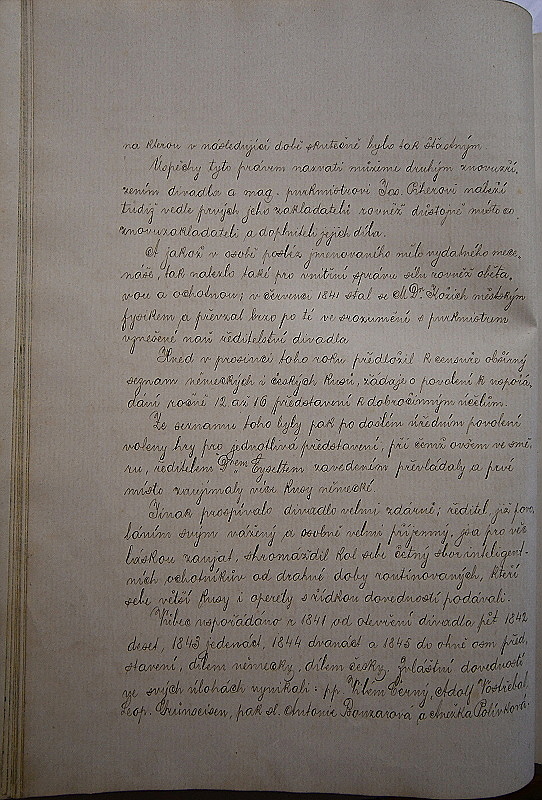 na kterou v následující době skutečně bylo tak šťastným.
Úspěchy tyto právem nazvati můžeme druhým znovuzří-
zením divadla a mag. purkmistrovi Jos. náleží
tudíž vedle prvých jeho zakladatelů rovněž důstojné místo co
znovuzakladateli a doplniteli jejich díla.
A jakož v osobě posléz jmenovaného mělo vydatného mece-
náše, tak nalezlo také pro vnitřní správu sílu rovněž oběta-
vou a ochotnou; v červenci 1841 stal se MDr. městským
fysikem a převzal brzo po té ve srozumění s purkmistrem
vznešené naň ředitelství divadla.
Hned v prosinci toho roku předložil k censuře obšírný
seznam německých i českých kusů, žádaje o povolení k uspořá-
dání ročně 12 až 16 představení k dobročinným účelům.
Ze seznamu toho byly pak po došlém úředním povolení
voleny hry pro jednotlivá představení, při čemž ovšem ve smě-
ru, ředitelem Drem Eyseltem zavedeném převládaly a prvé
místo zaujímaly více kusy německé.
Jinak prospívalo divadlo velmi zdárně; ředitel, jsa povo-
láním svým vážený a osobně velmi příjemný, jsa pro věc
láskou zaujat, shromáždil kol sebe četný sbor inteligent-
ních ochotníkův od drahné doby routinovaných, kteří
sebe větší kusy i operety s řídkou dovedností podávali.
Vůbec uspořádáno r. 1841 od otevření divadla pět, 1842
deset, 1843 jedenáct, 1844 dvanáct a 1845 do ohně osm před-
stavení, dílem německy, dílem česky. Zvláštní dovedností
ve svých úlohách vynikali: pp. Vilém Černý, Adolf Vostřebal,
Leop. Grünseisen, pak sl. Antonie a Anežka Polívková.